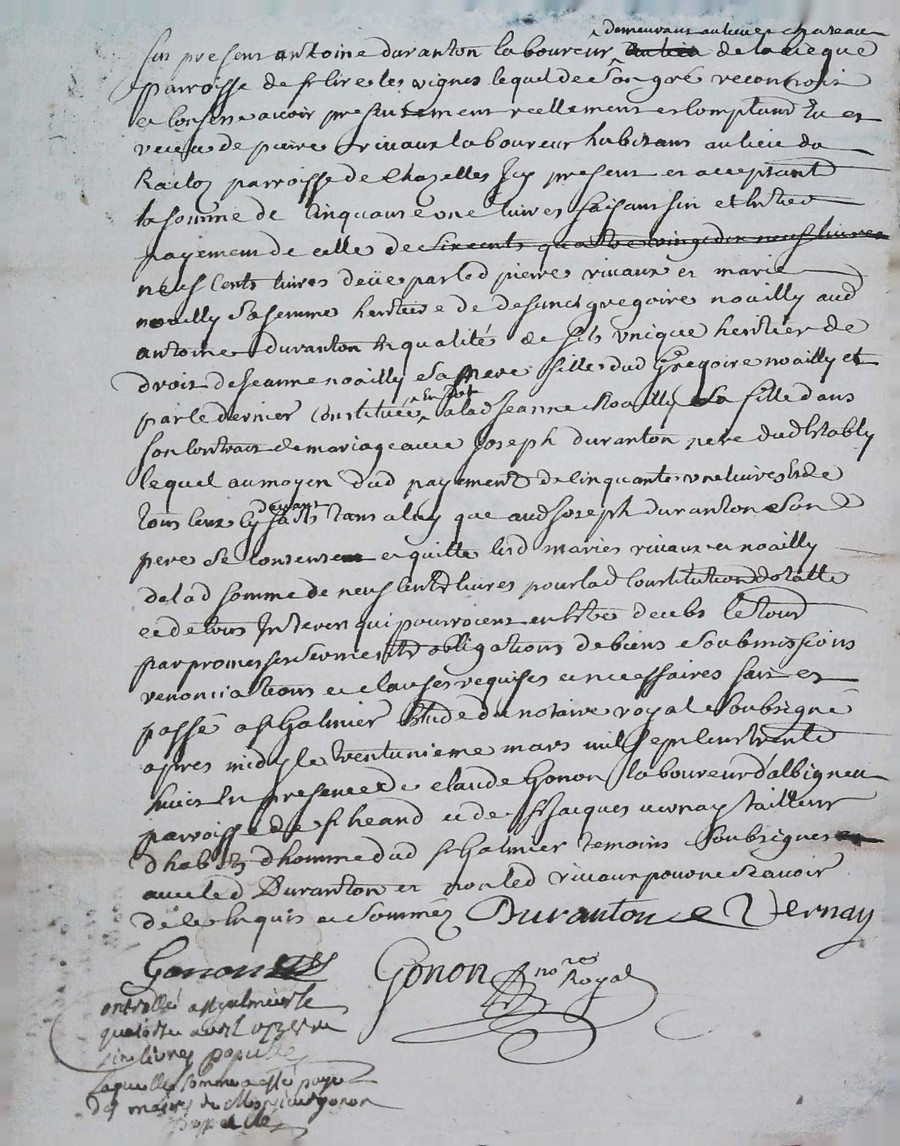 demeurant au lieu et chateau
fut present antoine duranton laboureur de la
parroisse de st cire les vignes lequel de son gré reconnoit
et confesse avoir presentement reellement et comptant eu et
receu de pierre rivaux laboureur habitant au lieu du
parroisse de Chazelles Icy present et acceptant
la somme de cinquante une livres faisant fin et entier
payement de celle de six cents quatre vingt dix neuf livres
neuf cents livres deüe par led pierre rivaux et marie
noailly sa femme heritiere de defunct gregoire noailly aud
antoine duranton en qualité de fils unique heritier de
droit de jeanne noailly sa mere fille dud Gregoire noailly et
par le dernier constituée en dot a lad Jeanne Noailly sa fille dans
son contrat de mariage avec joseph duranton pere dud Estably
lequel au moyen dud payement de cinquante une livres et de
tous ceux cy devant faits tant a luy que aud joseph duranton son
pere se contente et quitte lesd maries rivaux et noailly
de lad somme de neuf cents livres pour lad constitution dotalle
et de tous Interets qui pourroient en estre deubs le tout
par promesse serment obligations de biens soubmissions
renonciations et clauses requises et necessaires fait et
passé a st Galmier Etude du notaire royal soubsigné
apres midy le trentunieme mars mil sept cent trente
huit En presence de claude Gonon laboureur d'albigneu
parroisse de st heand et de sr jacques vernay tailleur
d'habits d'homme dud st Galmier temoins soubsignes
avec led Duranton et non led rivaux pour ne scavoir
de ce Enquis et sommés Duranton Vernay
Gonon Gonon nore Royal
controllé a st galmier le
quatorze avril 1738 receu
six livres
laquelle somme a esté payé
des mains de Monsieur gonon